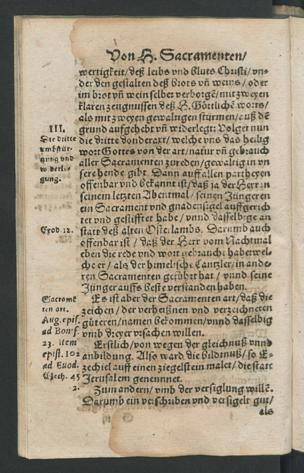 Von H. Sacramenten/
wertigkeit/ deß leibs vnd bluts Christi/ vn-
der den gestalten deß brots vñ weins/ oder
im brot vñ wein selber verborgẽ/ mit zweyen
klaren zeugnussen deß H. Göttlichẽ worts/
als mit zweyen gewaltigen stürmen/ auß dẽ
grund auffgehebt vñ widerlegt: Volget nun
III.
Die dritte
die dritte sonderart/ welche vns das heilig
wort Gottes von der art/ natur vñ gebrauch
aller Sacramenten zureden/ gewaltig in vn
sere hende gibt. Dann auff allen partheyen
offenbar vnd bekannt ist/ daß ja der Herr in
seinem letzten Abentmal/ seinen Jüngeren
ein Sacrament vnd gnadensigel auffgerich
tet vnd gestifftet habe/ vnnd dasselbige an
Exod. 12.
statt deß alten Osterlambs. Darumb auch
offenbar ist/ daß der Herr vom Nachtmal
eben die rede vnd wort gebraucht habe/ wel-
che er/ als der himelische Cantzler/ in ande
ren Sacramenten geführt hat/ vnnd seine
Jünger auffs beste verstanden haben.
Es ist aber der Sacramenten art/ daß die
zeichen/ der verheißnen vnd verzeichneten
Aug. epist.
güteren/ namen bekommen/ vnnd dasselbig
ad Bonif.
vmb zweyer vrsachen willen.
23. item
Erstlich/ von wegen der gleichnuß vnnd
epist. 102
anbildung. Also ward die bildtnuß/ so E-
ad Euod.
zechiel auff einen ziegelstein malet/ die statt
Jerusalem genennet.
2.
Zum andern/ vmb der versiglung willẽ.
Darumb ein verschriben vnd versigelt gut/
als